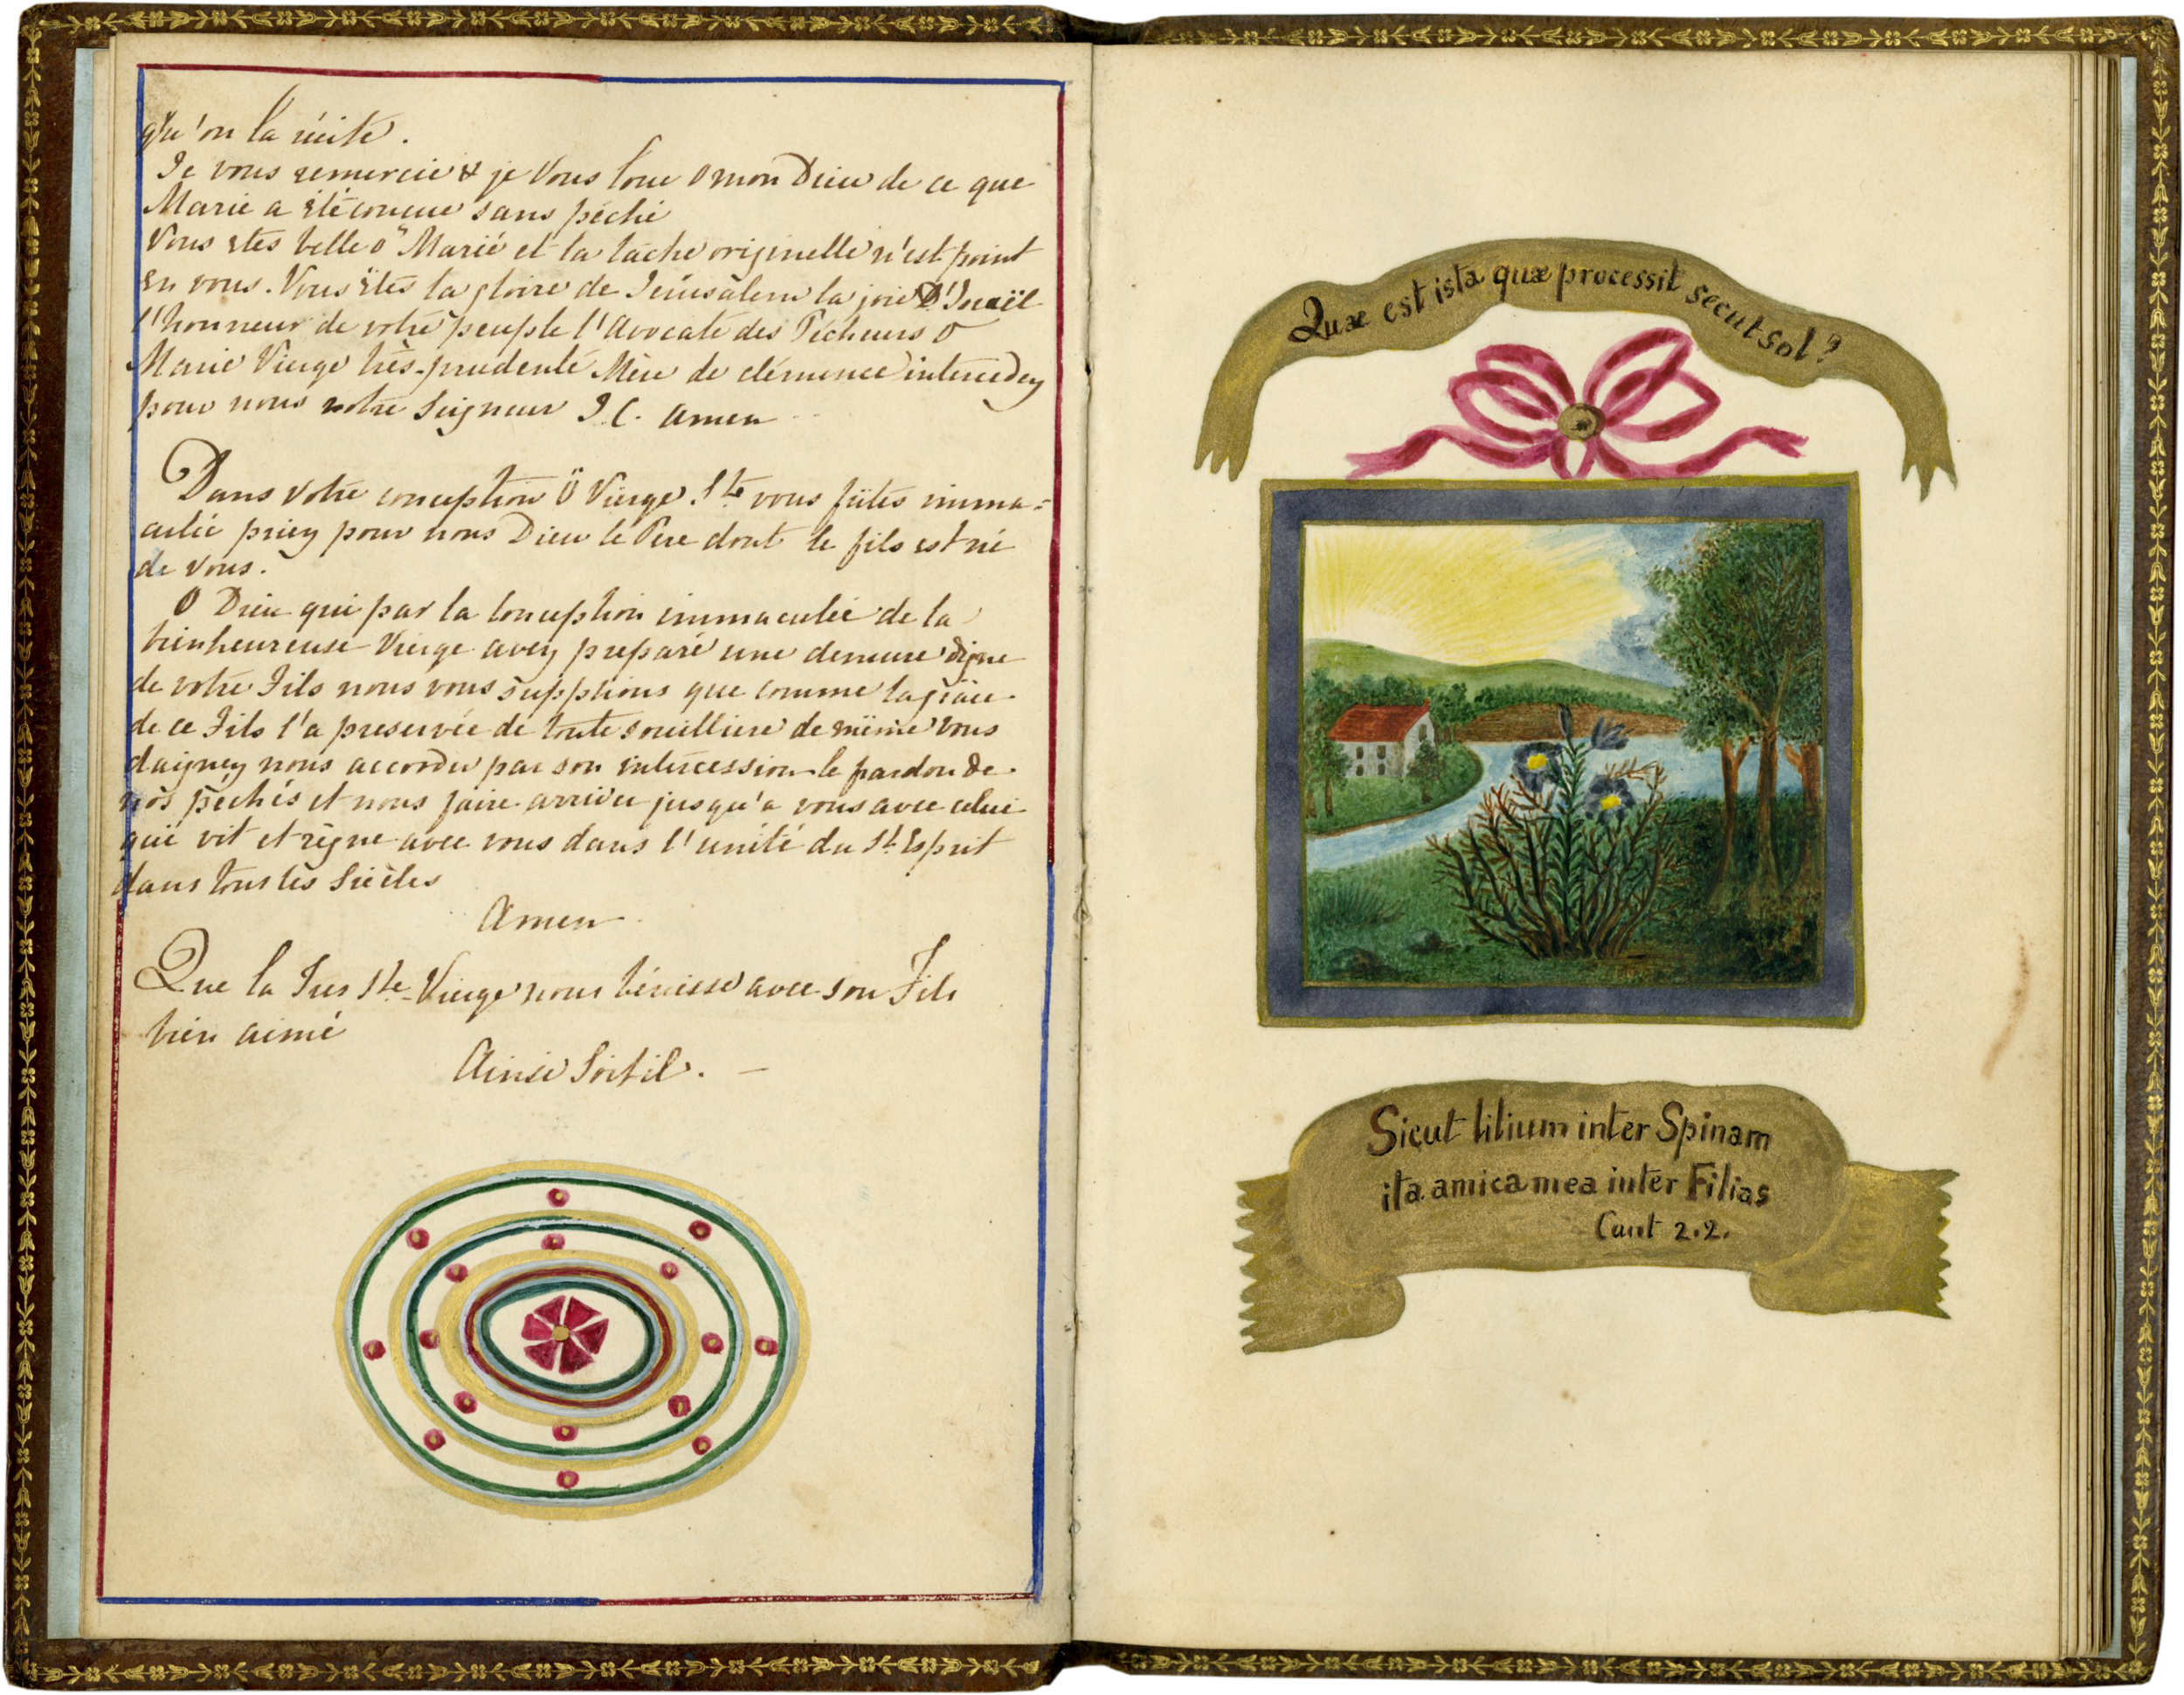 qu'on la récite.
Je vous remercie & je vous loue o mon Dieu de ce que
Marie a été concue sans péché
Vous etes belle o Marie et la tache originelle n'est point
en vous. Vous êtes la gloire de Jérusalem la joie d'Israël
l'honneur de votre peuple l'avocate des Pécheurs o
Marie Vierge très-prudente Mère de clémence intercedez
pour nous notre Seigneur J. C. amen
Dans votre conception ô Vierge Ste vous fûtes imma=
culée priez pour nous Dieu le Père dont le fils est né
de vous.
O Dieu qui par la conception immaculée de la
bienheureuse Vierge avez preparé une demeure digne
de votre Fils nous vous supplions que comme la grâce
de ce Fils l'a preservée de toute souillure de même vous
daigniez nous accorder par son intercession le pardon de
nos péchés et nous faire arriver jusqu'a vous avec celui
qui vit et règne avec vous dans l'unité du St Esprit
dans tous les Siècles
Amen
Que la Très Ste Vierge nous bénisse avec son Fils
bien aimé
Ainsi Soit il. —
Quæ est ista quæ processit secut sol?
Sicut lilium inter Spinam
ita amica mea inter Filias
Cant 2.2.